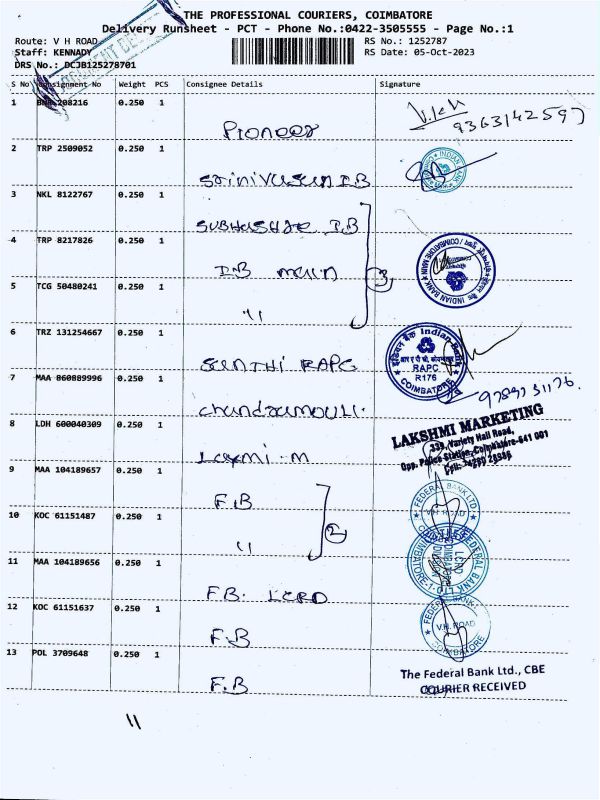 THE PROFESSIONAL COURIERS, COIMBATORE
Delivery Runsheet - PCT - Phone No.:0422-3505555 - Page No.:1
Route: V H ROAD RS No.: 1252787
Staff: KENNADY RS Date: 05-Oct-2023
DRS No.: DCJB125278701
S No Consignment No Weight PCS Consignee Details Signature
1 208216 0.250 1
Pioneer 9363142597
2 TRP 2509052 0.250 1
Srinivasan I.B
3 NKL 8122767 0.250 1
I.B
4 TRP 8217826 0.250 1
I.B main 3
5 TCG 50480241 0.250 1
"
6 TRZ 131254667 0.250 1
RAPC
7 MAA 860889996 0.250 1
Chandramouli.
8 LDH 600040309 0.250 1
Laxmi - M
9 MAA 104189657 0.250 1
F.B
10 KOC 61151487 0.250 1
" 2
11 MAA 104189656 0.250 1
F.B. LCRD
12 KOC 61151637 0.250 1
F.B
13 POL 3709648 0.250 1
F.B
INDIAN BANK
INDIAN BANK COIMBATORE MAIN
इंडियन बैंक Indian Bank
RAPC
R176
COIMBATORE
LAKSHMI MARKETING
339, Variety Hall Road,
Opp. Police Station, Coimbatore-641 001
FEDERAL BANK LTD.
V.H. ROAD
THE FEDERAL BANK LTD
LCRD
COIMBATORE-1
FEDERAL BANK LTD.
V.H. ROAD
COIMBATORE
The Federal Bank Ltd., CBE
COURIER RECEIVED
11